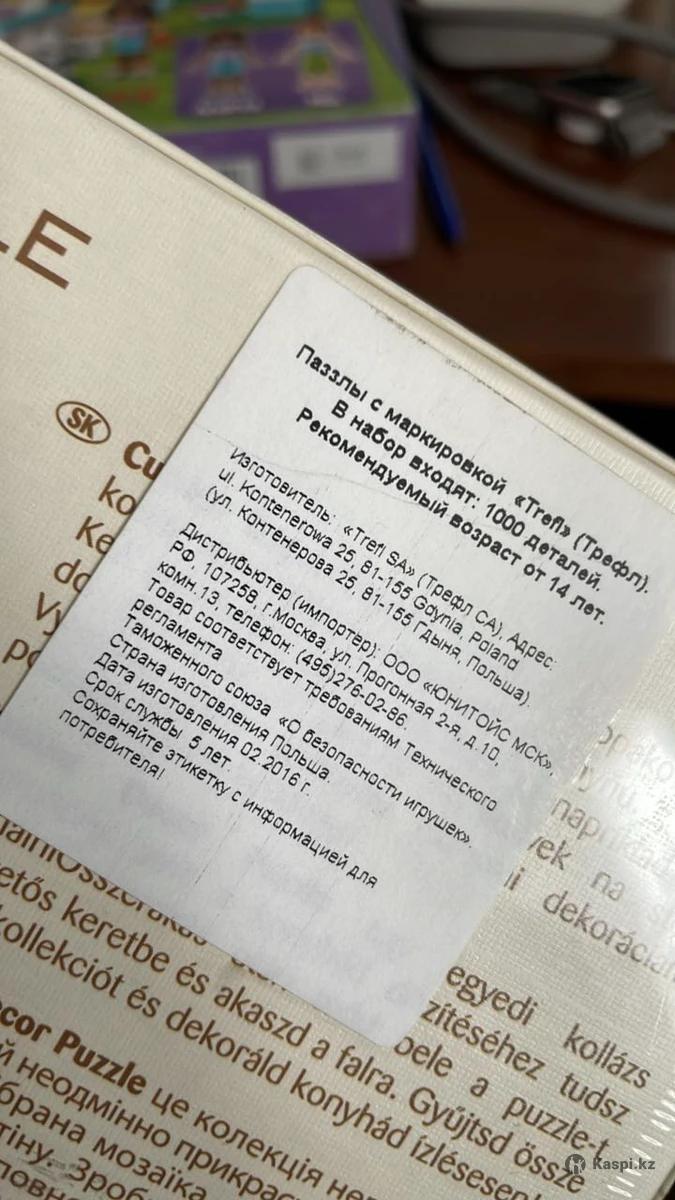 LE
SK
Cu
ko
Ke
do
vy
po
Паззлы с маркировкой «Trefl» (Трефл).
В набор входят: 1000 деталей.
Рекомендуемый возраст от 14 лет.
Изготовитель: «Trefl SA» (Трефл СА), Адрес:
ul. Kontenerowa 25, 81-155 Gdynia, Poland
(ул. Контенерова 25, 81-155 Гдыня, Польша).
Дистрибьютер (импортер): ООО «ЮНИТОЙС МСК»,
РФ, 107258, г.Москва, ул. Прогонная 2-я, д.10,
комн.13, телефон: (495)276-02-86.
Товар соответствует требованиям Технического
регламента
Таможенного союза «О безопасности игрушек».
Страна изготовления Польша.
Дата изготовления 02.2016 г.
Срок службы 5 лет.
Сохраняйте этикетку с информацией для
потребителя!
na
dekorácian
egyedi kollázs
etős keretbe és akaszd a falra. Gyűjtsd össze
zítéséhez tudsz
kollekciót és dekoráld konyhád ízlésesen
bele a puzzle-t
cor Puzzle це колекція
й неодмінно прикрас
брана мозаїка
тіну. Зроб
Kaspi.kz